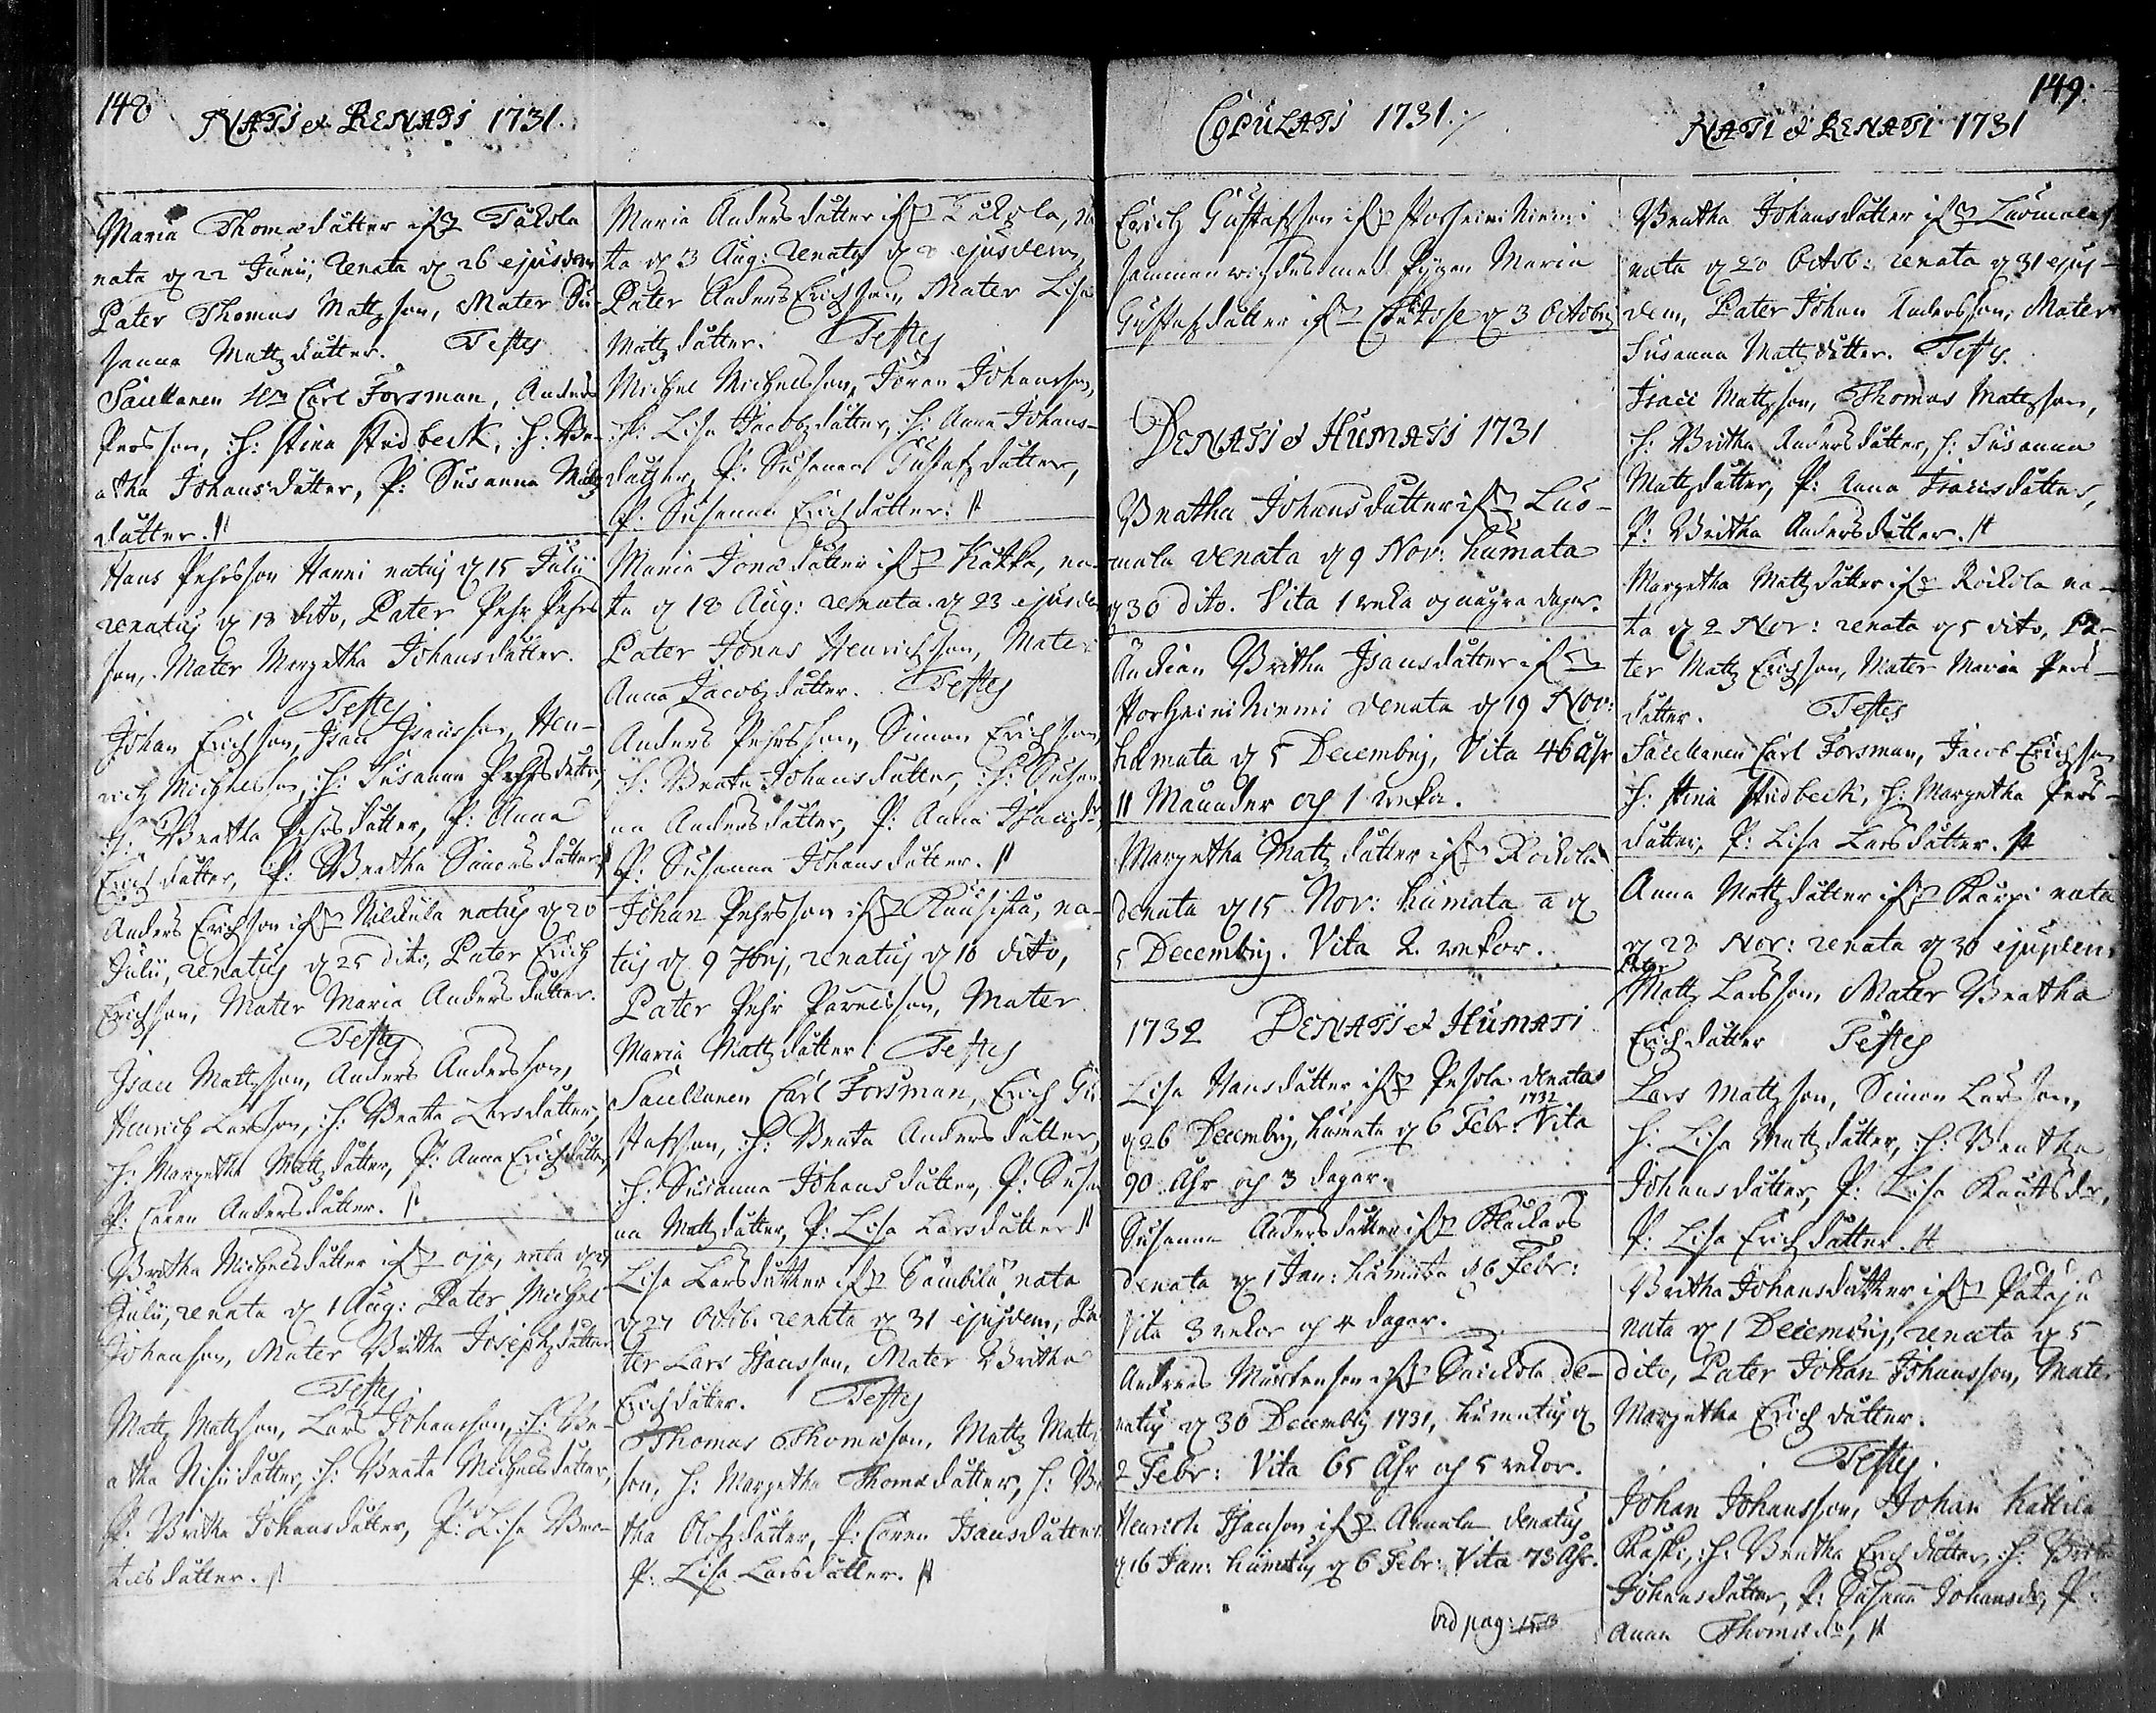 148
NATI et RENATI 1731.
Maria Thomædotter if
nata d 22 Junii, Renata d 26 ejusdem
Pater Thomas Mattzson, Mater Su-
sanna Mattzdotter. Testes
Sacellanen Hr Carl Forsman, Anders
Persson, H: Stina Stidbeck, H: Be-
atha Johansdotter, P: Susanna Mattz
dotter.
Hans Pehrsson Hanni natus d 15 Julii
renatus d 18 dito, Pater Pehr Pehrs
son, Mater Margetha Johansdotter.
Testes
Johan Erichson, Isaac Isaacsson, Hen-
rich Michelsson, H: Susanna Pehrsdotter,
H: Beatha Pehrsdotter, P: Anna
Erichdotter, P: Beatha Simonsdotter
Anders Erichson if Nikkula natus d 20
Julii, renatus d 25 dito, Pater Erich
Erichson, Mater Maria Andersdotter.
Testes
Isac Mattzson, Anders Andersson,
Henrich Larsson, H: Beata Larsdotter,
H: Margetha Mattzdotter, P: Anna Erichdotter,
P: Caren Andersdotter.
Britha Michelsdotter if Oja, nata d
Julii, renata d 1 Aug: Pater Michel
Johanson, Mater Britha Josephzdotter
Testes
Mattz Mattzson, Lars Johansson, H: Be-
atha dotter, H: Beata Michelsdotter,
P: Britha Johansdotter, P: Lisa
dotter.
Maria Andersdotter if na
ta d 3 Aug: renata d 8 ejusdem,
Pater Anders Erichson, Mater Lisa
Mattzdotter. Testes
Michel Michelsson, Jören Johansson,
H: Lisa Jacobzdotter, H: Anna Johans-
dotter, P: Susanna Gustafzdotter,
P: Susanna Erichdotter.
Maria Jonædotter if Kakka, na-
ta d 18 Aug: renata d 23 ejusdem
Pater Jonas Henrichsson, Mater
Anna Jacobzdotter. Testes
Anders Pehrsson, Simon Erichson,
H: Beata Johansdotter, H: Susan
na Andersdotter, P: Anna Isacsdr,
P: Susanna Johansdotter.
Johan Pehrsson if na-
tus d 9 7brij, renatus d 10 dito,
Pater Pehr Pavelsson, Mater
Maria Mattzdotter. Testes
Sacellanen Carl Forsman, Erich Gu
stafsson, H: Beata Andersdotter,
H: Susanna Johansdotter, P: Susan
na Mattzdotter, P: Lisa Larsdotter
Lisa Larsdotter if nata
d 27 Octob. renata d 31 ejusdem, Pa
ter Lars Isacsson, Mater Britha
Erichdotter. Testes
Thomas Thomæson, Mattz Mattz
son, H: Margetha Thomædotter, H: Be
tha Olofzdotter, P: Caren Isacsdotter
P: Lisa Larsdotter.
COPULATI 1731.
Erich Gustafson if Storheininiemi
sammanwigdes med Pygan Maria
Gustafzdotter if d 3 Octobris
DENATI et HUMATI 1731
Beatha Johansdotter if Luo-
mala denata d 9 Nov: humata
d 30 dito. Vita 1 weka och några dagar.
Änckian Britha Isacsdotter if
Storheininiemi denata d 19 Nov:
humata d 5 Decembris, Vita 46 åhr
11 Månader och 1 weka.
Margetha Mattzdotter if Roikola
denata d 15 Nov: humata d
5 Decembris. Vita 2 wekor.
1732 DENATI et HUMATI
Lisa Hansdotter if Pesola denata
1732
d 26 Decembris, humata d 6 Febr: Vita
90 åhr och 3 dagar.
Susanna Andersdotter if
denata d 1 Jan: humata d 6 Febr:
Vita 3 wekor och 4 dagar.
Andreas Mårtenson if de-
natus d 30 Decembris 1731, humatus d
2 Febr: Vita 65 åhr och 5 wekor.
Henrich Isacson if Annala denatus
d 16 Jan: humatus d 6 Febr: Vita 73 åhr.
vid pag: 153
149.
NATI et RENATI 1731
Beatha Johansdotter if Luomala
nata d 28 Octob: renata d 31 ejus-
dem, Pater Johan Andersson, Mater
Susanna Mattzdotter. Testes.
Isaci Mattzson, Thomas Mattzson,
H: Britha Andersdotter, H: Susanna
Mattzdotter, P: Anna Isacsdotter,
P: Britha Andersdotter.
Margetha Mattzdotter if Roikola na-
ta d 2 Nov: renata d 5 dito, Pa-
ter Mattz Erichson, Mater Maria Pers-
dotter. Testes
Sacellanen Carl Forsman, Jacob Erichson
H: Stina Stidbeck, H: Margetha Pers-
dotter, P: Lisa Larsdotter.
Anna Mattzdotter if Karpi nata
d 28 Nov: renata d 30 ejusdem
Pater
Mattz Larsson, Mater Beatha
Erichdotter Testes
Lars Mattzson, Simon Larsson,
H: Lisa Mattzdotter, H: Beatha
Johansdotter, P: Lisa Knutsdr,
P: Lisa Erichdotter.
Britha Johansdotter if Pataju
nata d 1 Decembris, renata d 5
dito, Pater Johan Johansson, Mater
Margetha Erichdotter.
Testes.
Johan Johansson, Johan Kattila
Kaski, H: Beatha Erichdotter, H: Brita
Johansdotter, P: Susanna Johansdr, P:
Anna Thomædr,